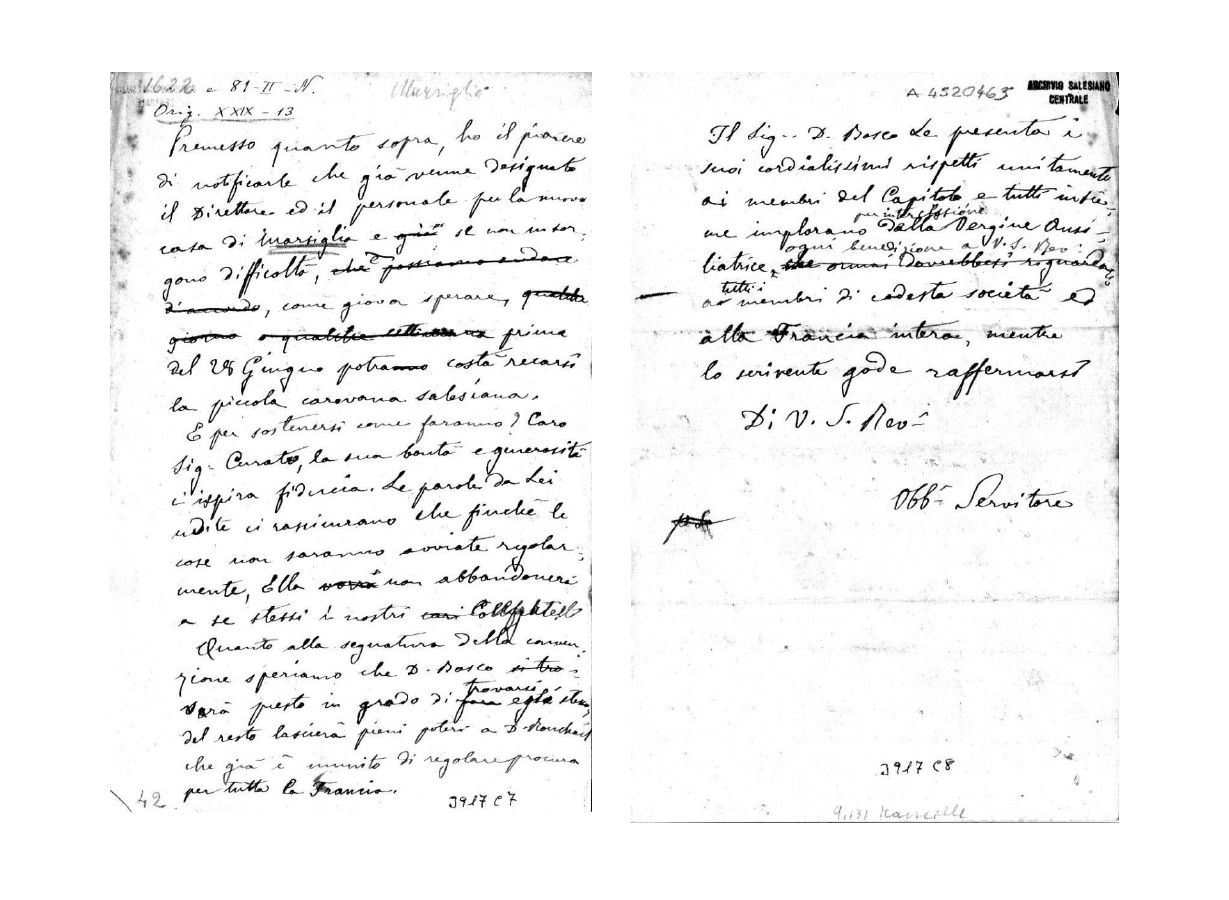 1622 e 81-II-N.
Marsiglia
Orig. XXIX - 13
Premesso quanto sopra, ho il piacere
di notificarle che già venne designato
il Direttore ed il personale per la nuova
casa di Marsiglia e già se non insor-
gono difficoltà, che possiamo andare
d'accordo, come giova sperare, qualche
giorno o qualche settimana prima
del 28 Giugno potranno costà recarsi
la piccola carovana salesiana.
E per sostenersi come faranno? Caro
Sig. Curato, la sua bontà e generosità
c'ispira fiducia. Le parole da Lei
udite ci rassicurano che finchè le
cose non saranno avviate regolar-
mente, Ella vorrà non abbandonerà
a se stessi i nostri cari Confratelli
Quanto alla segnatura della conven-
zione speriamo che D. Bosco si tro-
varà presto in grado di fara trovarsi egli stesso,
del resto lascierà pieni poteri a D. Ronchail
che già è munito di regolare procura
per tutta la Francia.
42
3917 C7
A 4520463
ARCHIVIO SALESIANO
CENTRALE
Il Sig. D. Bosco Le presenta i
suoi cordialissimi rispetti unitamente
ai membri del Capitolo, e tutti insie-
per intercessione
me implorano dalla Vergine Ausi-
ogni benedizione a V. S. Rev.
liatrice, che ormai dovrebbesi riguardare
tutti i
ai membri di codesta società ed
alla Francia intera, mentre
lo scrivente gode raffermarsi
Di V. S. Rev.
Obb. Servitore
3917 C8
Marseille